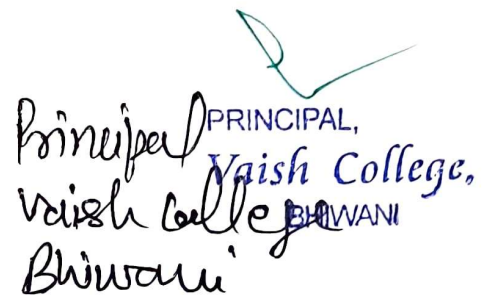 PRINCIPAL,
Vaish College,
BHIWANI
Principal
Vaish College
Bhiwani